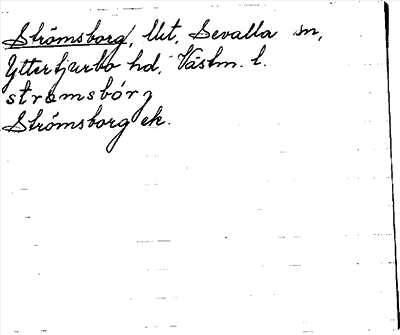 Strömsborg, lht, Sevalla sn,
Yttertjurbo hd, Västm. l.
strömsbórj
Strömsborg ek.